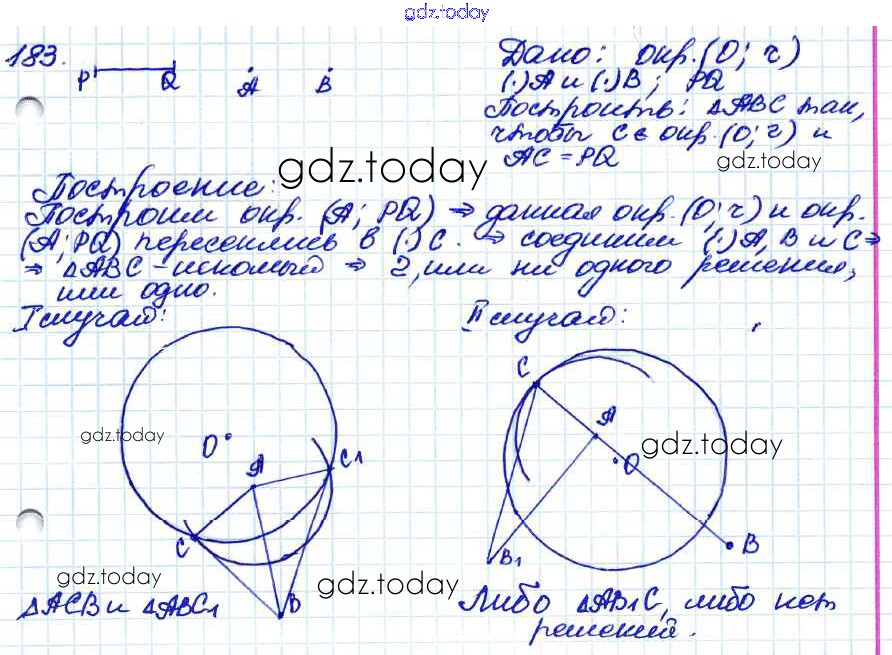 gdz.today
183.
P Q A B
Дано: окр.(O; r)
(·)A и (·)B; PQ
Построить: △ABC так,
чтобы C ∈ окр.(O; r) и
AC = PQ
gdz.today
gdz.today
Построение:
Построим окр. (A; PQ) ⇒ данная окр.(O; r) и окр.
(A; PQ) пересеклись в (·) C. ⇒ соединим (·) A, B и C ⇒
⇒ △ABC - искомый ⇒ 2, или ни одного решения,
или одно.
I случай:
II случай:
O
A
C1
C
B
gdz.today
gdz.today
△ACB и △ABC1
C
A
O
B1
B
gdz.today
gdz.today
Либо △AB1C, либо нет
решений.